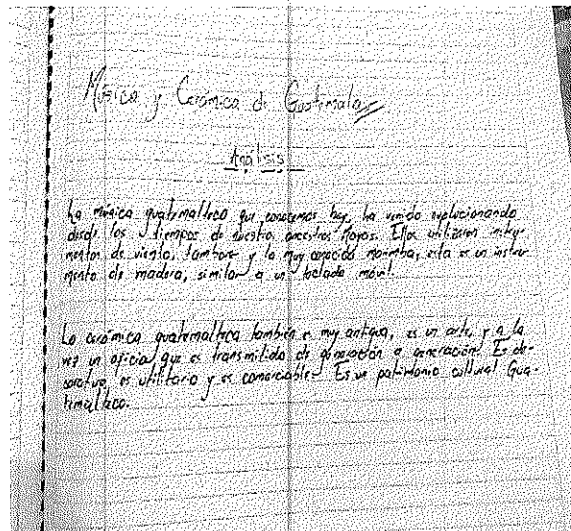 Música y Cerámica de Guatemala
Análisis
La música guatemalteca que conocemos hoy, ha venido evolucionando
desde los tiempos de nuestros ancestros Mayas. Ellos utilizaron instru-
mentos de viento, tambores y la muy conocida marimba, esta es un instru-
mento de madera, similar a un teclado móvil.
La cerámica guatemalteca también es muy antigua, es un arte, y a la
vez un oficio que es transmitido de generación a generación. Es de-
corativa, es utilitario y es comerciable. Es un patrimonio cultural Gua-
temalteco.